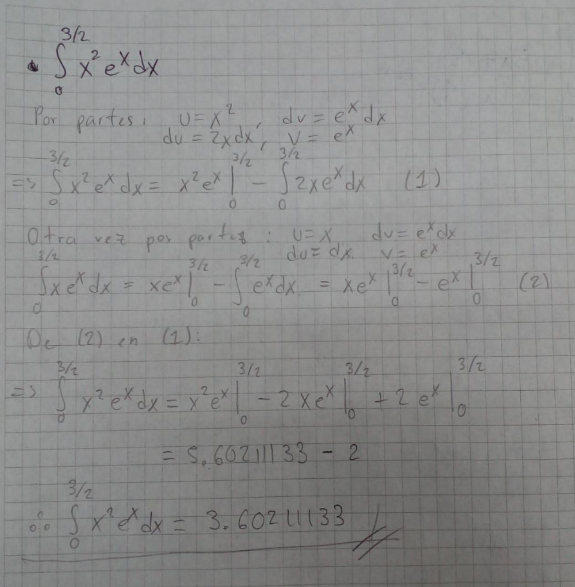 • ∫₀^{3/2} x² eˣ dx
Por partes: u = x², dv = eˣ dx
du = 2x dx, v = eˣ
=> ∫₀^{3/2} x² eˣ dx = x² eˣ |₀^{3/2} - ∫₀^{3/2} 2x eˣ dx (1)
Otra vez por partes: u = x dv = eˣ dx
du = dx. v = eˣ
∫₀^{3/2} x eˣ dx = x eˣ |₀^{3/2} - ∫₀^{3/2} eˣ dx = x eˣ |₀^{3/2} - eˣ |₀^{3/2} (2)
De (2) en (1):
=> ∫₀^{3/2} x² eˣ dx = x² eˣ |₀^{3/2} - 2 x eˣ |₀^{3/2} + 2 eˣ |₀^{3/2}
= 5.60211133 - 2
∴ ∫₀^{3/2} x² eˣ dx = 3.60211133 //